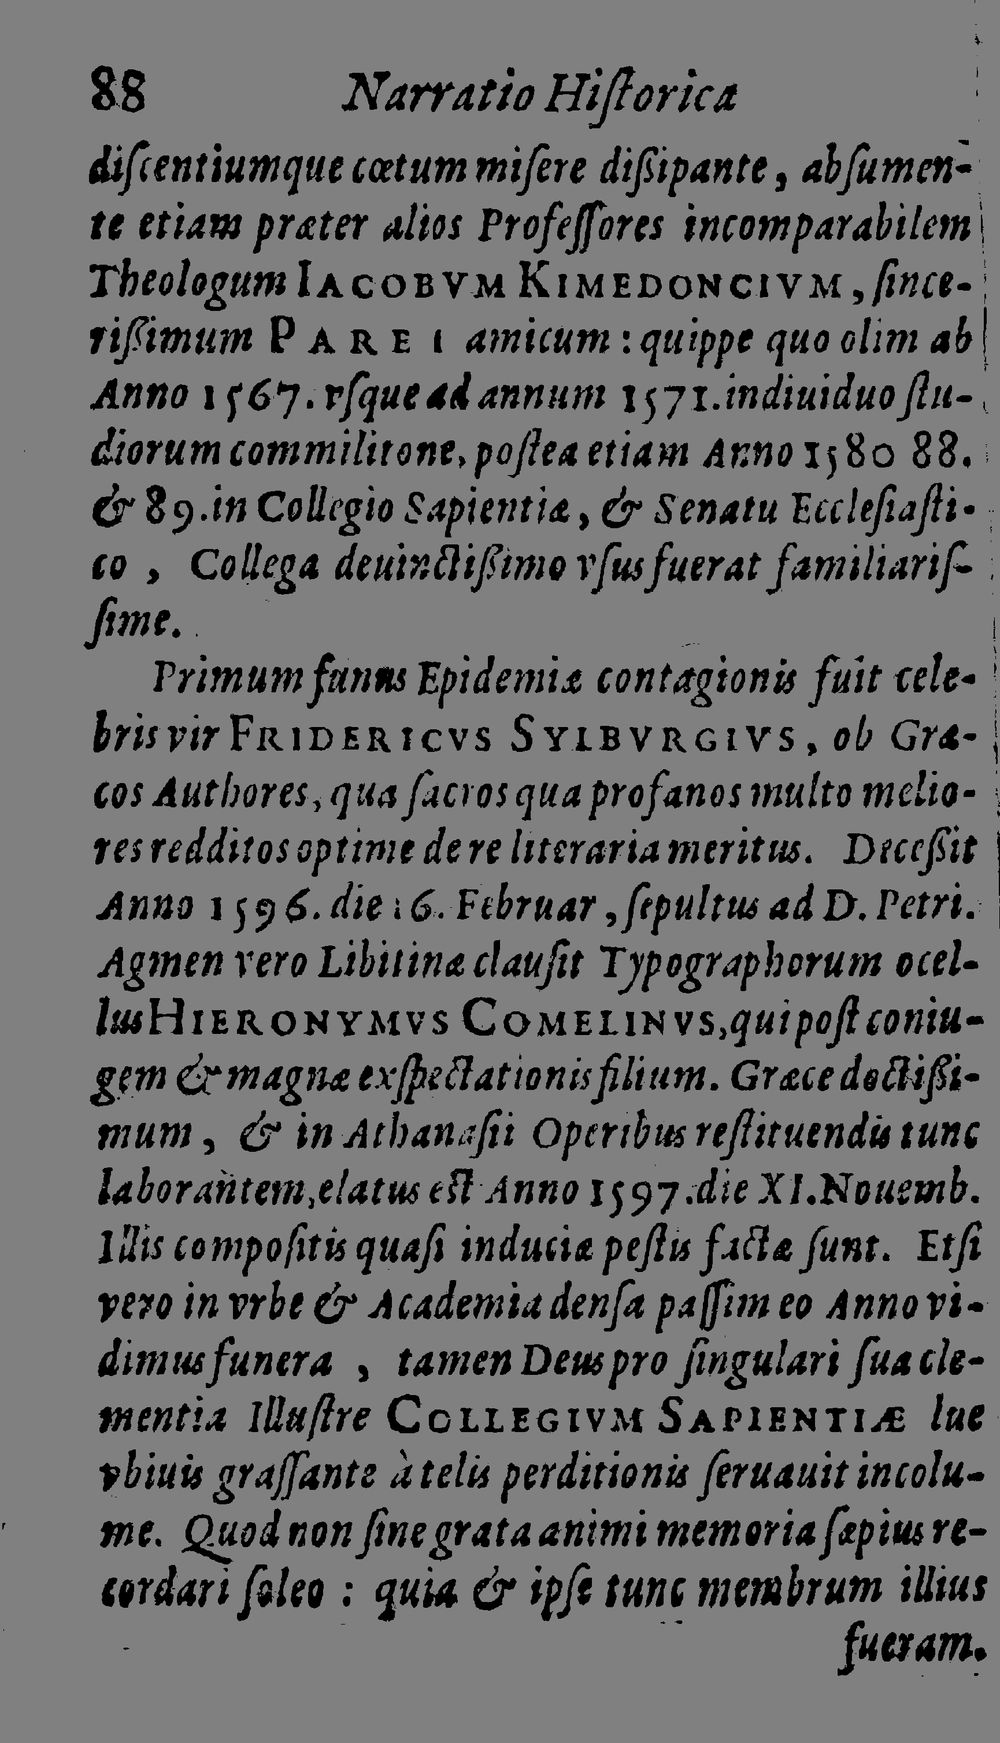 88 Narratio Hiſtorica
diſcentiumque cœtum miſere dißipante, abſumen-
te etiam præter alios Profeſſores incomparabilem
Theologum IACOBVM KIMEDONCIVM, ſince-
rißimum PAREI amicum: quippe quo olim ab
Anno 1567. vſque ad annum 1571. indiuiduo ſtu-
diorum commilitone, poſtea etiam Anno 1580 88.
& 89. in Collegio Sapientiæ, & Senatu Eccleſiaſti-
co, Collega deuinctißimo vſus fuerat familiariſ-
ſime.
Primum funus Epidemiæ contagionis fuit cele-
bris vir FRIDERICVS SYLBVRGIVS, ob Græ-
cos Authores, qua ſacros qua profanos multo melio-
res redditos optime de re literaria meritus. Deceßit
Anno 1596. die 16. Februar, ſepultus ad D. Petri.
Agmen vero Libitinæ clauſit Typographorum ocel-
lus HIERONYMVS COMELINVS, qui poſt coniu-
gem & magnæ exſpectationis filium. Græce doctißi-
mum, & in Athanaſii Operibus reſtituendis tunc
laborantem, elatus eſt Anno 1597. die XI. Nouemb.
Illis compoſitis quaſi induciæ peſtis factæ ſunt. Etſi
vero in vrbe & Academia denſa paſſim eo Anno vi-
dimus funera, tamen Deus pro ſingulari ſua cle-
mentia Illuſtre COLLEGIVM SAPIENTIÆ lue
vbiuis graſſante à telis perditionis ſeruauit incolu-
me. Quod non ſine grata animi memoria ſæpius re-
cordari ſoleo: quia & ipſe tunc membrum illius
fueram.